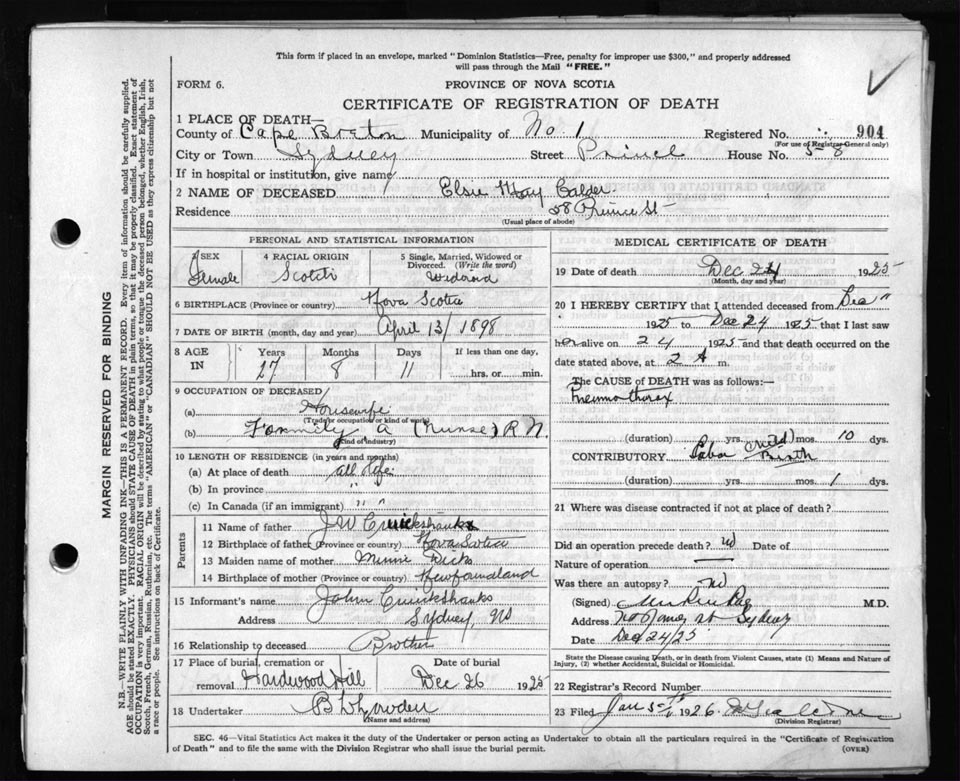 This form if placed in an envelope, marked "Dominion Statistics—Free, penalty for improper use $300," and properly addressed
will pass through the Mail "FREE."
FORM 6.
PROVINCE OF NOVA SCOTIA
CERTIFICATE OF REGISTRATION OF DEATH
1 PLACE OF DEATH—
County of Cape Breton Municipality of No 1 Registered No. 904
(For use of Registrar-General only)
City or Town Sydney Street Prince House No. 58
If in hospital or institution, give name
2 NAME OF DECEASED Elsie May Calder
Residence 58 Prince St
(Usual place of abode)
PERSONAL AND STATISTICAL INFORMATION
3 SEX Female
4 RACIAL ORIGIN Scotch
5 Single, Married, Widowed or Divorced. (Write the word)
6 BIRTHPLACE (Province or country) Nova Scotia
7 DATE OF BIRTH (month, day and year) April 13/1898
8 AGE IN Years 27 Months 8 Days 11 If less than one day, hrs. or min.
9 OCCUPATION OF DECEASED
(a) Housewife
(Trade, occupation or kind of work)
(b) Formerly a (Nurse) R N.
(Kind of industry)
10 LENGTH OF RESIDENCE (in years and months)
(a) At place of death all life
(b) In province "
(c) In Canada (if an immigrant) " "
Parents
11 Name of father J W Cruickshanks
12 Birthplace of father (Province or country) Nova Scotia
13 Maiden name of mother Minnie Dicks
14 Birthplace of mother (Province or country) Newfoundland
15 Informant's name John Cruickshanks
Address Sydney, NS
16 Relationship to deceased Brother
17 Place of burial, cremation or removal Hardwood Hill Date of burial Dec 26 1925
18 Undertaker
(Name and address)
MEDICAL CERTIFICATE OF DEATH
19 Date of death Dec 24 1925
(Month, day and year)
20 I HEREBY CERTIFY that I attended deceased from Dec
1925 to Dec 24 1925 that I last saw
her alive on 24 1925 and that death occurred on the
date stated above, at 2 A m.
The CAUSE OF DEATH was as follows:—
Pneumothorax
(duration) yrs. mos. 10 dys.
CONTRIBUTORY Labor (child) Birth
(duration) yrs. mos. 1 dys.
21 Where was disease contracted if not at place of death?
Did an operation precede death? no Date of
Nature of operation —
Was there an autopsy? no
(Signed) M.D.
Address Sydney
Date Dec 24/25
State the Disease causing Death, or in death from Violent Causes, state (1) Means and Nature of
Injury, (2) whether Accidental, Suicidal or Homicidal.
22 Registrar's Record Number
23 Filed Jan 5th 1926
(Division Registrar)
SEC. 46—Vital Statistics Act makes it the duty of the Undertaker or person acting as Undertaker to obtain all the particulars required in the "Certificate of Registration
of Death" and to file the same with the Division Registrar who shall issue the burial permit.
(OVER)
MARGIN RESERVED FOR BINDING
N.B.—WRITE PLAINLY WITH UNFADING INK—THIS IS A PERMANENT RECORD. Every item of information should be carefully supplied.
AGE should be stated EXACTLY. PHYSICIANS should STATE CAUSE OF DEATH in plain terms, so that it may be properly classified. Exact statement of
OCCUPATION is very important. RACIAL ORIGIN will be described by stating to what people or tongue the deceased person belonged, whether English, Irish,
Scotch, French, German, Russian, Ruthenian, etc. The terms "AMERICAN" or "CANADIAN" SHOULD NOT BE USED as they express citizenship but not
a race or people. See instructions on back of Certificate.